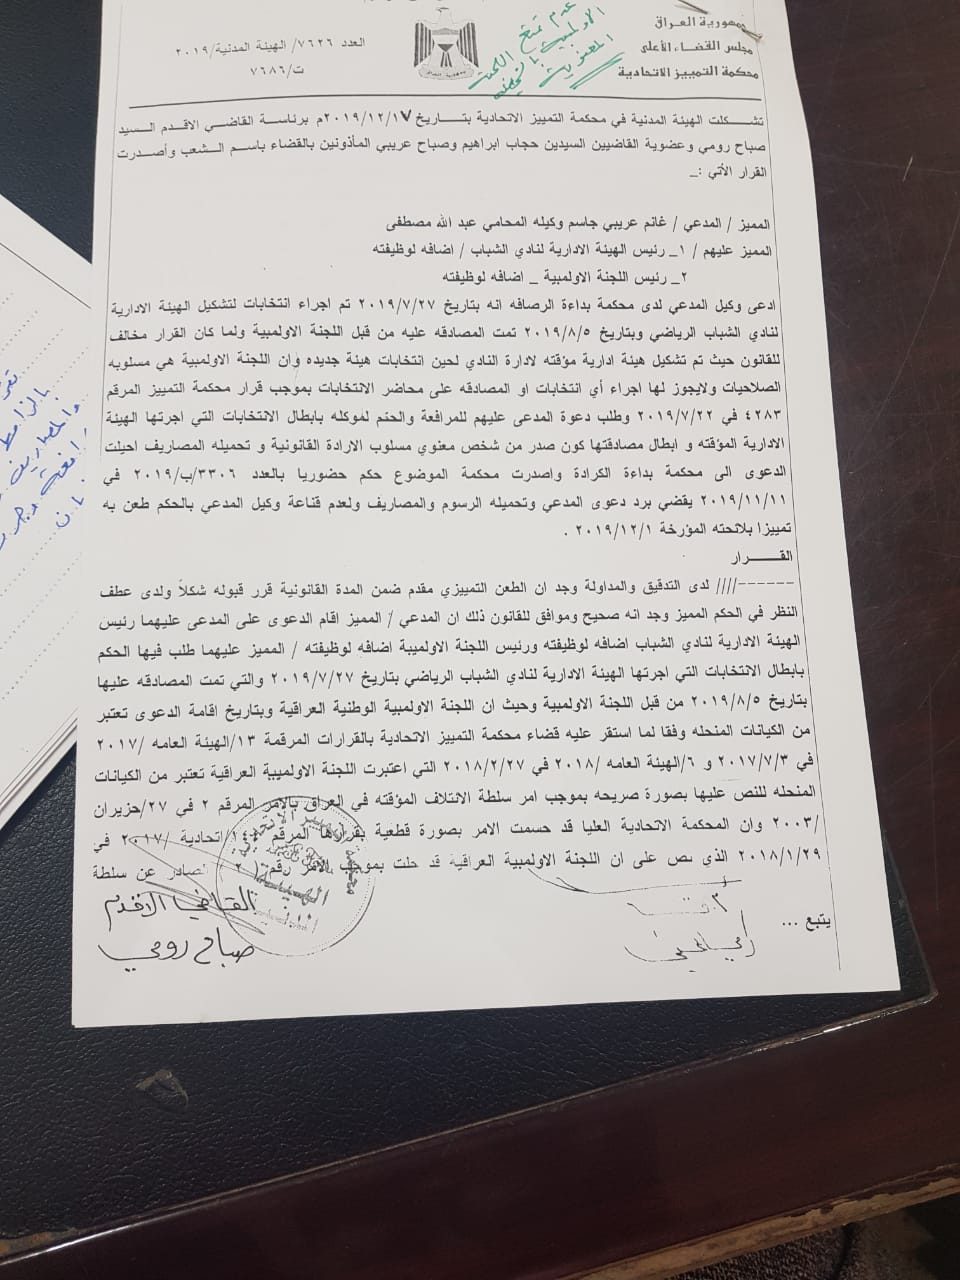 جمهورية العراق
مجلس القضاء الأعلى
محكمة التمييز الاتحادية
العدد ٧٦٢٦/ الهيئة المدنية/٢٠١٩
ت/٧٦٨٦
عدم تمتع اللجنة
الاولمبية بالشخصية
المعنوية
تشكلت الهيئة المدنية في محكمة التمييز الاتحادية بتاريخ ٢٠١٩/١٢/١٧م برئاسة القاضي الاقدم السيد
صباح رومي وعضوية القاضيين السيدين حجاب ابراهيم وصباح عريبي المأذونين بالقضاء باسم الشعب وأصدرت
القرار الأتي :_
المميز / المدعي / غانم عريبي جاسم وكيله المحامي عبد الله مصطفى
المميز عليهم / ١_ رئيس الهيئة الادارية لنادي الشباب / اضافه لوظيفته
٢_ رئيس اللجنة الاولمبية _ اضافه لوظيفته
ادعى وكيل المدعي لدى محكمة بداءة الرصافه انه بتاريخ ٢٠١٩/٧/٢٧ تم اجراء انتخابات لتشكيل الهيئة الادارية
لنادي الشباب الرياضي وبتاريخ ٢٠١٩/٨/٥ تمت المصادقه عليه من قبل اللجنة الاولمبية ولما كان القرار مخالف
للقانون حيث تم تشكيل هيئة ادارية مؤقته لادارة النادي لحين انتخابات هيئة جديده وإن اللجنة الاولمبية هي مسلوبه
الصلاحيات ولايجوز لها اجراء أي انتخابات او المصادقه على محاضر الانتخابات بموجب قرار محكمة التمييز المرقم
٤٢٨٣ في ٢٠١٩/٧/٢٢ وطلب دعوة المدعى عليهم للمرافعة والحكم لموكله بابطال الانتخابات التي اجرتها الهيئة
الادارية المؤقته و ابطال مصادقتها كون صدر من شخص معنوي مسلوب الارادة القانونية و تحميله المصاريف احيلت
الدعوى الى محكمة بداءة الكرادة واصدرت محكمة الموضوع حكم حضوريا بالعدد ٣٣٠٦/ب/٢٠١٩ في
٢٠١٩/١١/١١ يقضي برد دعوى المدعي وتحميله الرسوم والمصاريف ولعدم قناعة وكيل المدعي بالحكم طعن به
تمييزا بلائحته المؤرخة ٢٠١٩/١٢/١ .
القــــرار
------//// لدى التدقيق والمداولة وجد ان الطعن التمييزي مقدم ضمن المدة القانونية قرر قبوله شكلاً ولدى عطف
النظر في الحكم المميز وجد انه صحيح وموافق للقانون ذلك ان المدعي / المميز اقام الدعوى على المدعى عليهما رئيس
الهيئة الادارية لنادي الشباب اضافه لوظيفته ورئيس اللجنة الاولمبية اضافه لوظيفته / المميز عليهما طلب فيها الحكم
بابطال الانتخابات التي اجرتها الهيئة الادارية لنادي الشباب الرياضي بتاريخ ٢٠١٩/٧/٢٧ والتي تمت المصادقه عليها
بتاريخ ٢٠١٩/٨/٥ من قبل اللجنة الاولمبية وحيث ان اللجنة الاولمبية الوطنية العراقية وبتاريخ اقامة الدعوى تعتبر
من الكيانات المنحله وفقا لما استقر عليه قضاء محكمة التمييز الاتحادية بالقرارات المرقمة ١٣/الهيئة العامه /٢٠١٧
في ٢٠١٧/٧/٣ و ٦/الهيئة العامه /٢٠١٨ في ٢٠١٨/٢/٢٧ التي اعتبرت اللجنة الاولمبية العراقية تعتبر من الكيانات
المنحله للنص عليها بصورة صريحه بموجب امر سلطة الائتلاف المؤقته في العراق بالامر المرقم ٢ في ٢٧/حزيران
/٢٠٠٣ وان المحكمة الاتحادية العليا قد حسمت الامر بصورة قطعية بقرارها المرقم /اتحادية /٢٠١٧ في
٢٠١٨/١/٢٩ الذي نص على ان اللجنة الاولمبية العراقية قد حلت بموجب الامر رقم (٢) الصادر عن سلطة
يتبع ...
القاضي الاقدم
صباح رومي